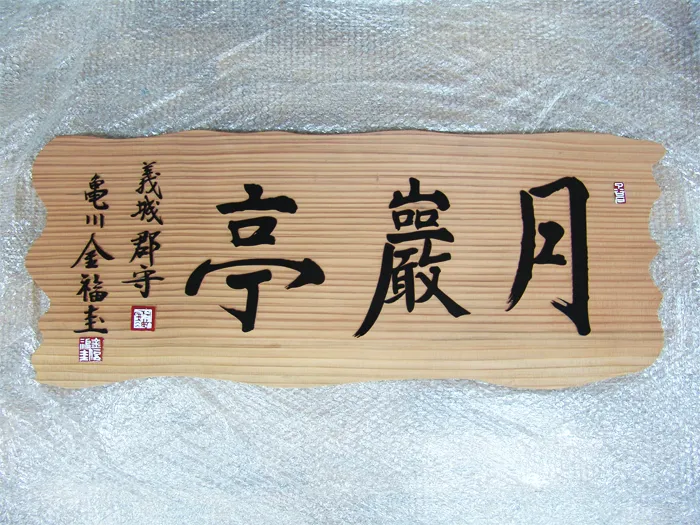 月巖亭
義城郡守
亀川金福圭